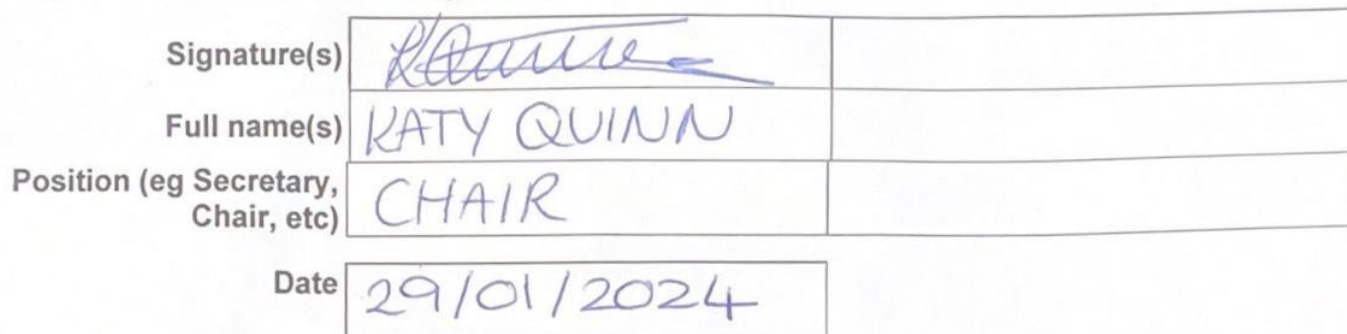 Signature(s)
Full name(s) KATY QUINN
Position (eg Secretary,
Chair, etc) CHAIR
Date 29/01/2024